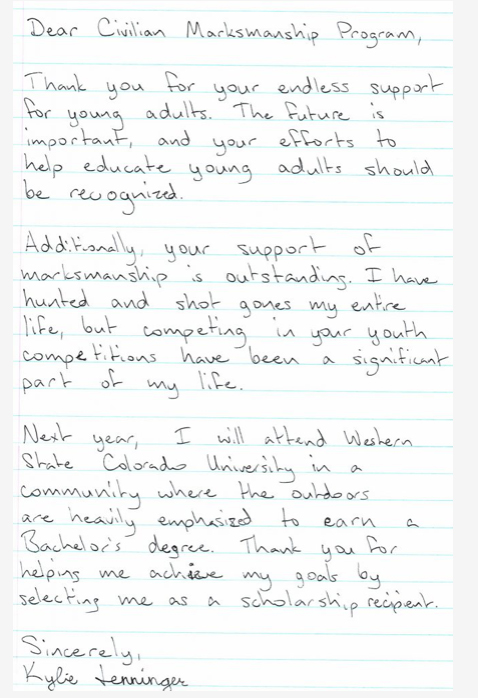 Dear Civilian Marksmanship Program,
Thank you for your endless support
for young adults. The future is
important, and your efforts to
help educate young adults should
be recognized.
Additionally, your support of
marksmanship is outstanding. I have
hunted and shot gones my entire
life, but competing in your youth
competitions have been a significant
part of my life.
Next year, I will attend Western
State Colorado University in a
community where the outdoors
are heavily emphasized to earn a
Bachelor's degree. Thank you for
helping me achieve my goals by
selecting me as a scholarship recipient.
Sincerely,
Kylie